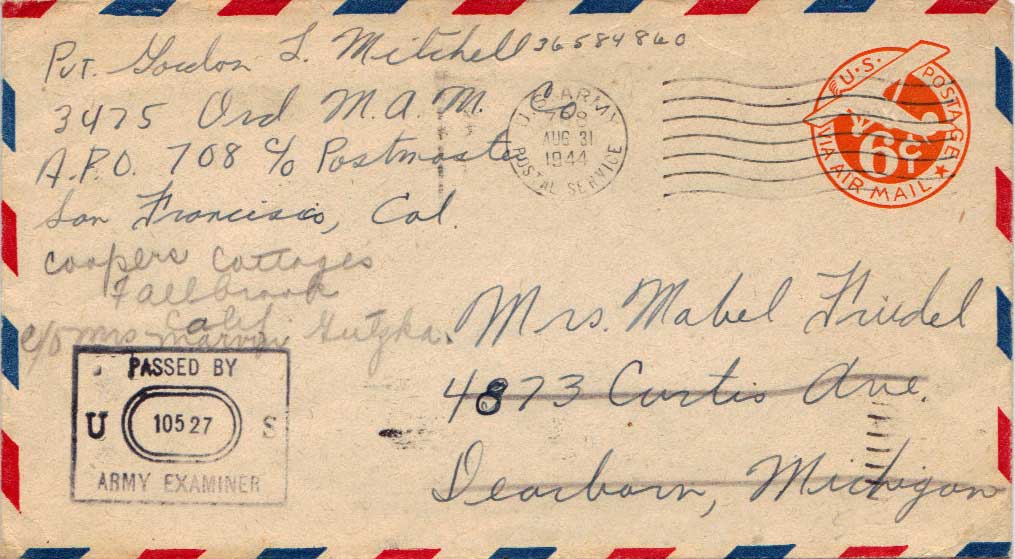 Pvt. Gordon L. Mitchell 36584860
3475 Ord M.A.M. Co
A.P.O. 708 c/o Postmaster
San Francisco, Cal.
U.S. ARMY
AUG 31
1944
POSTAL SERVICE
U.S. POSTAGE
6¢
VIA AIR MAIL
Coopers Cottages
Fallbrook
Calif
c/o Mrs Marvin Gutzka.
Mrs. Mabel Friedel
4873 Curtis Ave.
Dearborn, Michigan
PASSED BY
U 10527 S
ARMY EXAMINER